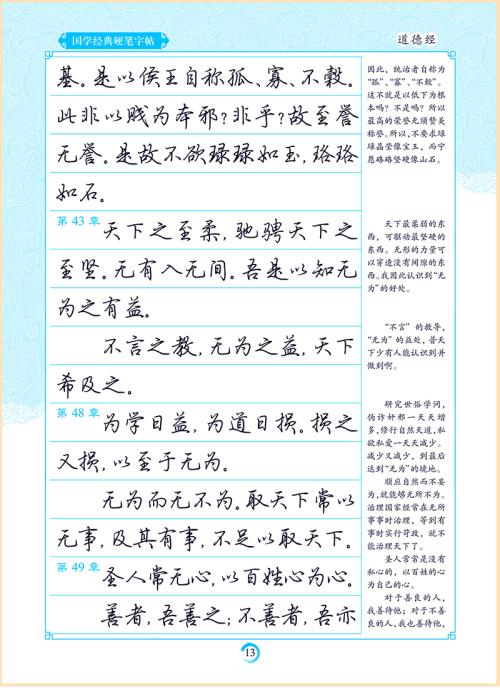 国学经典硬笔字帖
道德经
基。是以侯王自称孤、寡、不榖。
此非以贱为本邪?非乎?故至誉
无誉。是故不欲琭琭如玉,珞珞
如石。
第 43 章
天下之至柔,驰骋天下之
至坚。无有入无间。吾是以知无
为之有益。
不言之教,无为之益,天下
希及之。
第 48 章
为学日益,为道日损。损之
又损,以至于无为。
无为而无不为。取天下常以
无事,及其有事,不足以取天下。
第 49 章
圣人常无心,以百姓心为心。
善者,吾善之;不善者,吾亦
因此,统治者自称为
“孤”、“寡”、“不榖”。
这不就是以低下为根
本吗?不是吗?所以
最高的荣誉无须赞美
称誉。所以,不要求琭
琭晶莹像宝玉,而宁
愿珞珞坚硬像山石。
天下最柔弱的东
西,可驱动最坚硬的
东西。无形的力量可
以穿透没有间隙的东
西。我因此认识到“无
为”的好处。
“不言”的教导,
“无为”的益处,普天
下少有人能认识到并
做到啊。
研究世俗学问,
伪诈奸邪一天天增
多,修行自然天道,私
欲私爱一天天减少。
减少又减少,到最后
达到“无为”的境地。
顺应自然而不妄
为,就能够无所不为。
治理国家经常在无所
事事时治理,等到有
事时实行苛政,就不
能治理天下了。
圣人常常是没有
私心的,以百姓的心
为自己的心。
对于善良的人,
我善待他;对于不善
良的人,我也善待他,
13